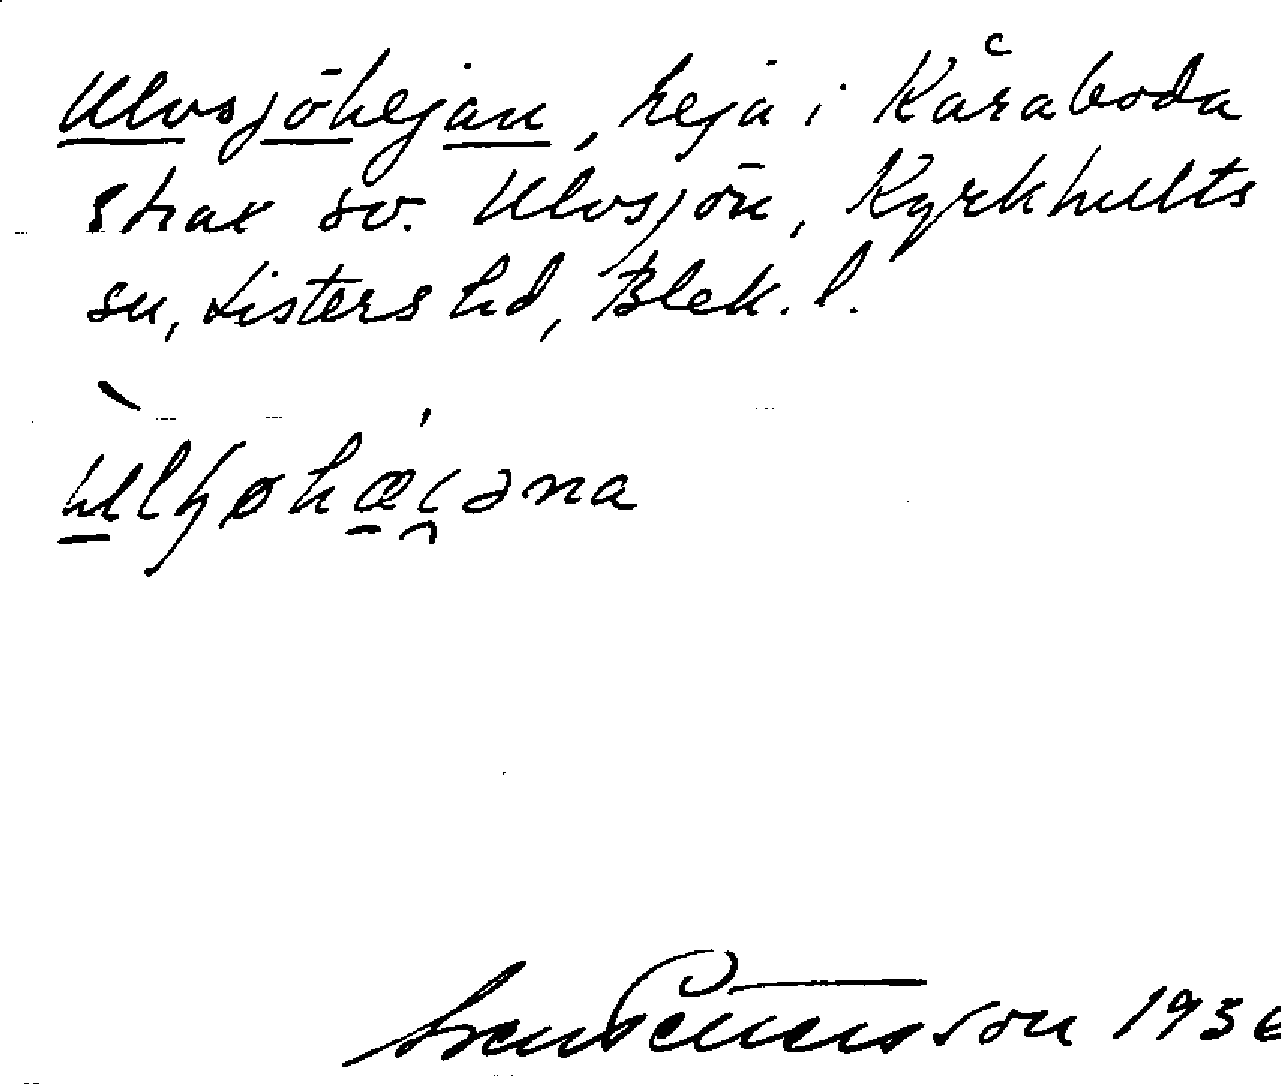 Ulvsjöhejan, heja i Kåraboda
strax sv. Ulvsjön, Kyrkhults
sn, Listers hd, Blek. l.
ùlɧøhǽi̯əna
Sven Pettersson 1936